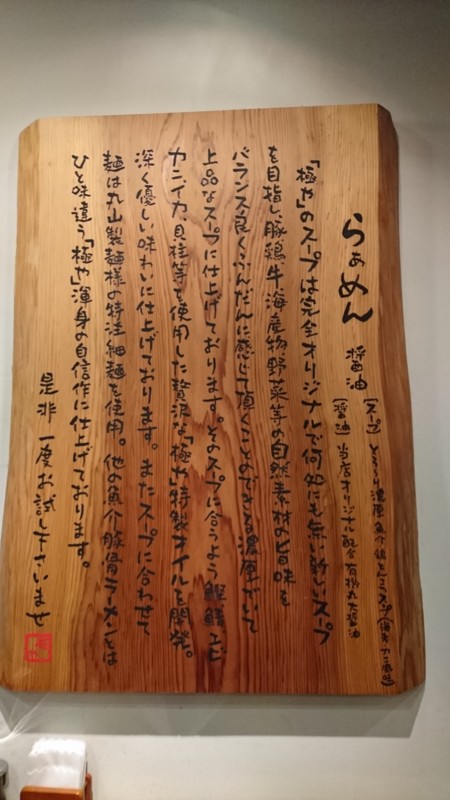 らぁめん 醤油
[スープ] とろーり濃厚魚介鶏とんこつスープ(海老カニ風味)
[醤油] 当店オリジナル配合有機丸大醤油
「極や」のスープは完全オリジナルで何処にも無い新しいスープ
を目指し、豚、鶏、牛、海産物、野菜等の自然素材の旨味を
バランス良くふんだんに感じて頂くことのできる濃厚でいて
上品なスープに仕上げております。そのスープに合うよう鰹、鯖、エビ
カニ、イカ、貝柱等を使用した贅沢な「極や」特製オイルを開発。
深く優しい味わいに仕上げております。またスープに合わせて
麺は丸山製麺様の特注細麺を使用。他の魚介豚骨ラーメンとは
ひと味違う「極や」渾身の自信作に仕上げております。
是非一度お試し下さいませ